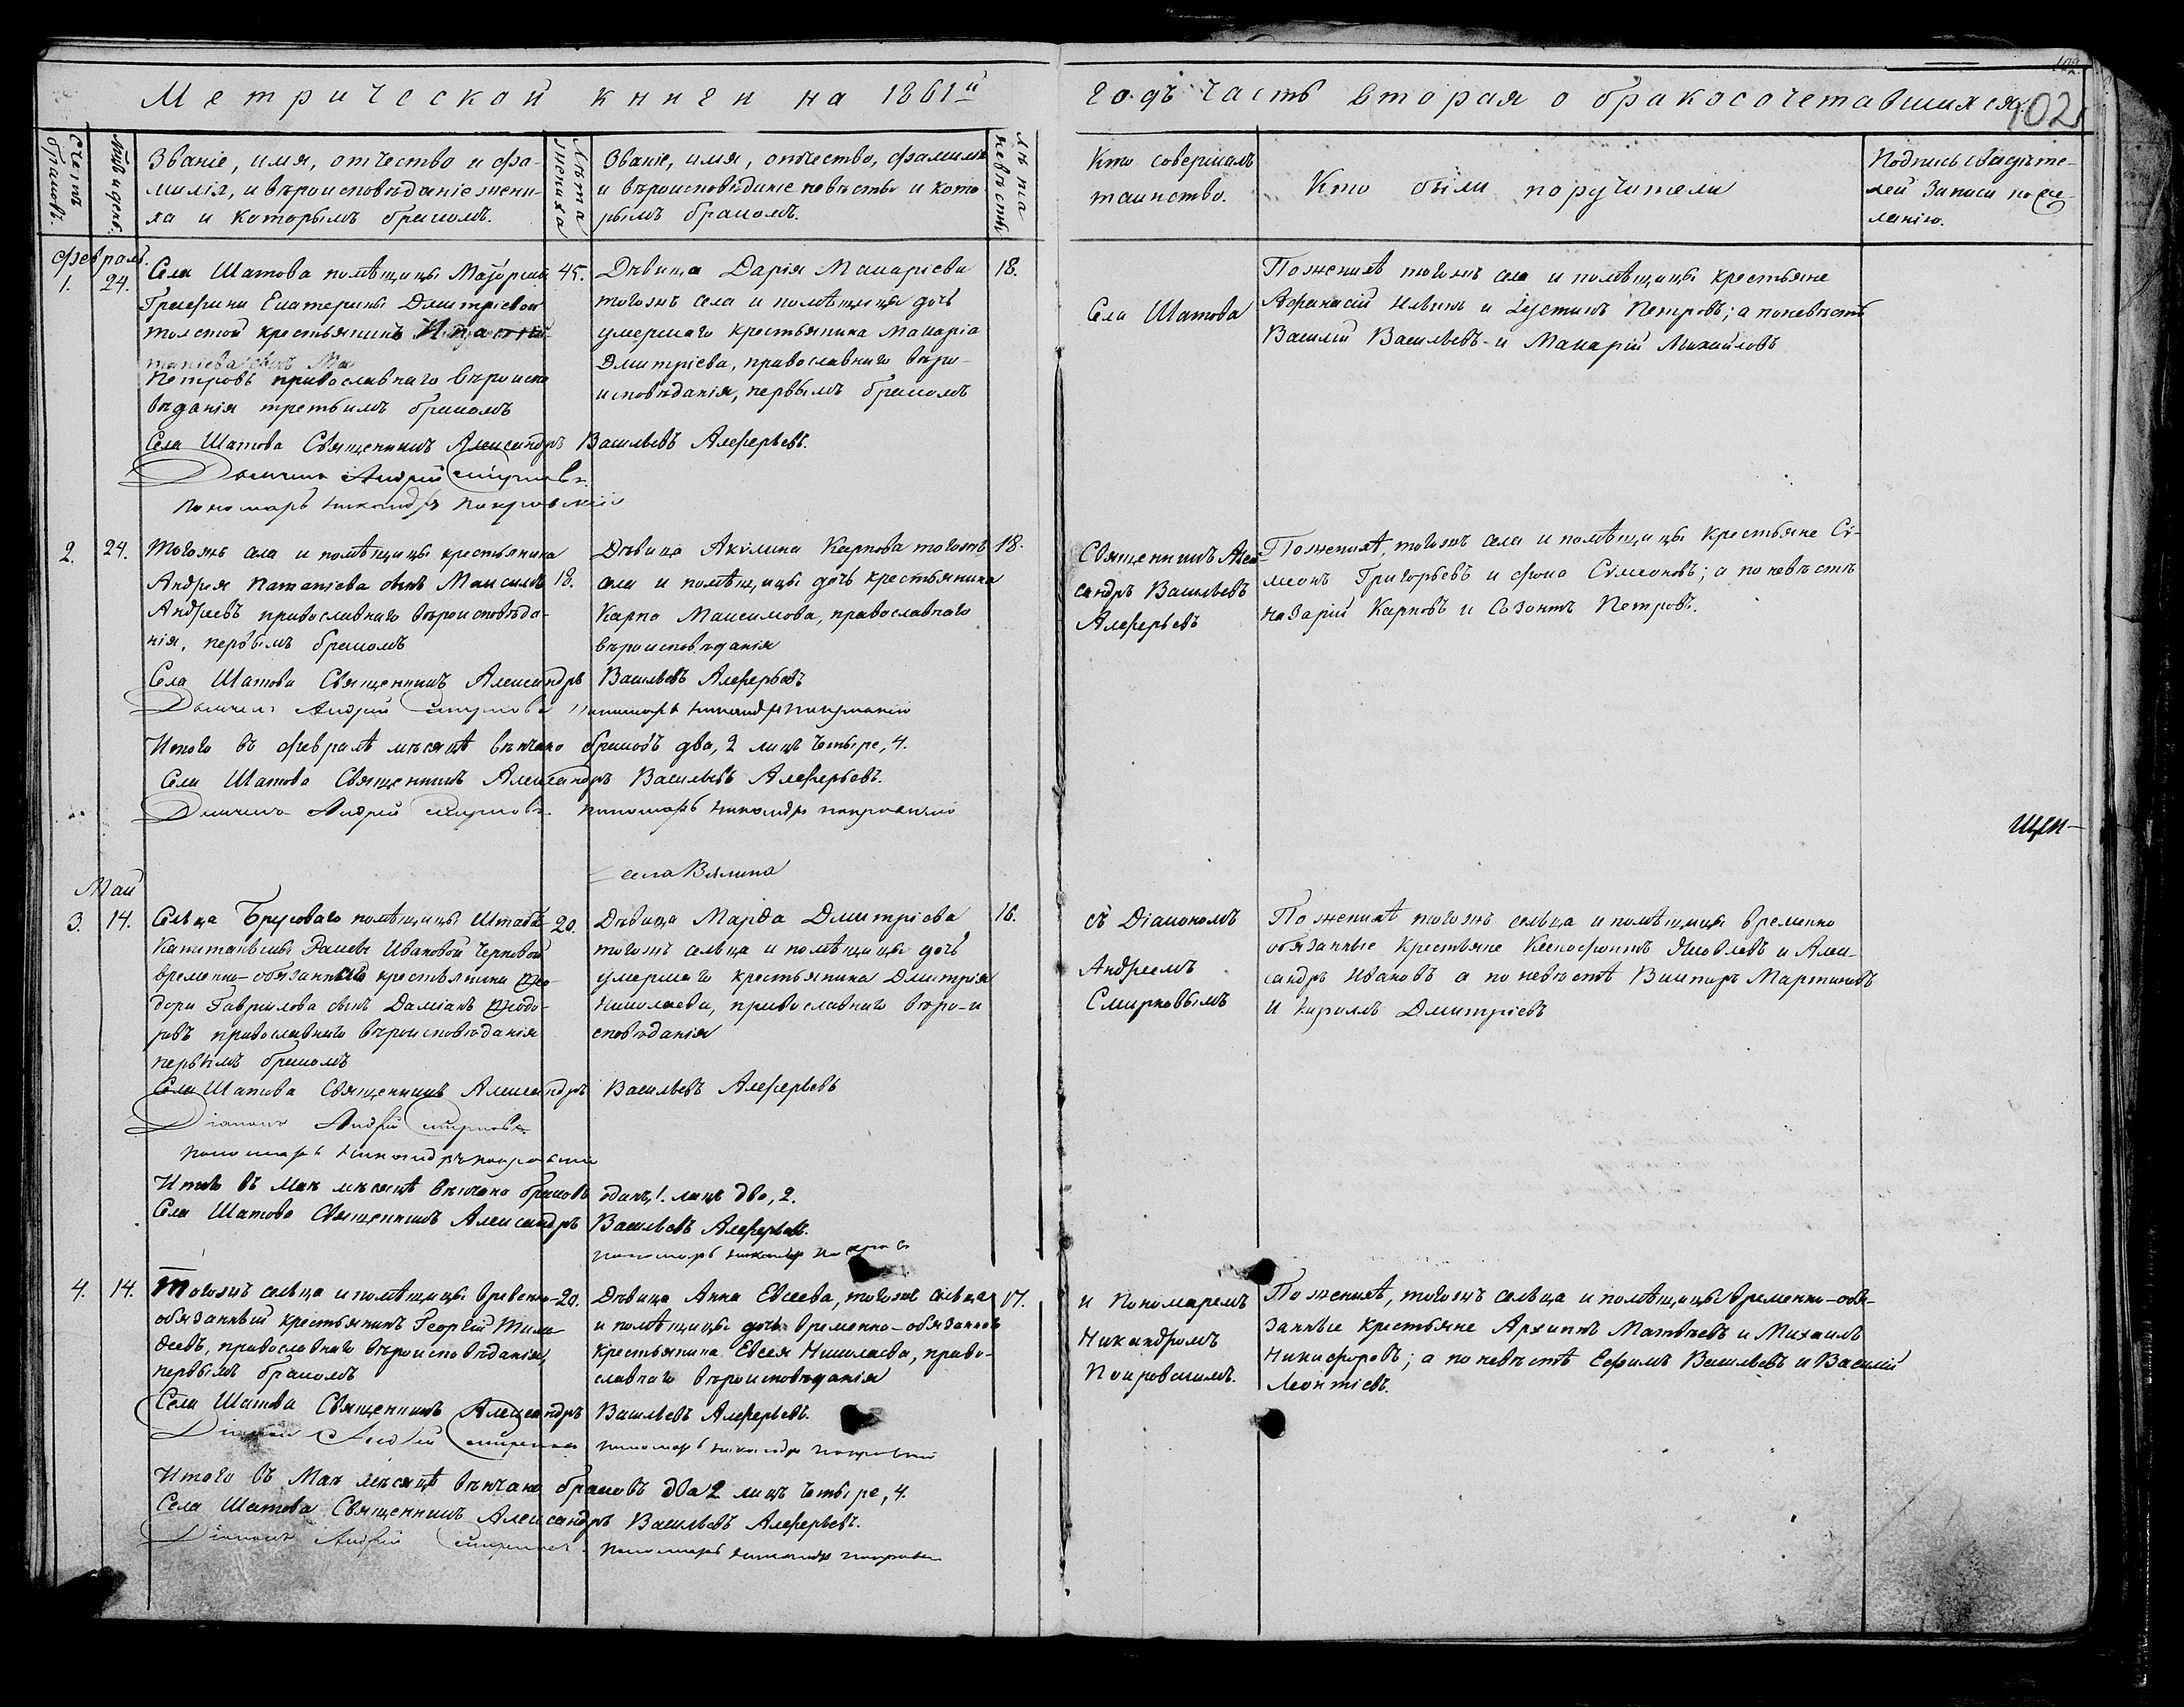 Метрической книги на 1861й
годъ часть вторая о бракосочетавшихся.
102
Счетъ браковъ.
Званіе, имя, отчество и фа-
милія, и вѣроисповѣданіе жени-
ха и которымъ бракомъ.
Лѣта жениха
Званіе, имя, отчество, фамилія
и вѣроисповѣданіе невѣсты и кото-
рымъ бракомъ.
Лѣта невѣсты
Кто совершалъ
таинство.
Кто были поручители
Подпись свидѣте-
лей записи по же-
ланію.
Февраль.
1. 24.
Села Шатова помѣщицы
Графини Екатерины Дмитріевой
Толстой крестьянинъ
Петровъ православнаго вѣроиспо
вѣданія третьимъ бракомъ
45.
Дѣвица Дарія Макаріева
тогожъ села и помѣщицы дочь
умершаго крестьянина Макарія
Дмитріева, православнаго вѣро-
исповѣданія, первымъ бракомъ
18.
Села Шатова Священникъ Александръ Васильевъ Алферьевъ.
Андрей Смирновъ
Пономарь Никандръ Покровскій
Села Шатова
По женихѣ тогожъ села и помѣщицы крестьяне
Афанасій Ильинъ и Іустинъ Петровъ; а по невѣстѣ
Василій Васильевъ и Макарій Михайловъ
2. 24.
Тогожъ села и помѣщицы крестьянина
Андрея Патапіева сынъ Максимъ
Андреевъ православнаго вѣроисповѣда-
нія, первымъ бракомъ
18.
Дѣвица Акилина Карпова тогожъ
села и помѣщицы дочь крестьянина
Карпа Максимова, православнаго
вѣроисповѣданія
18.
Села Шатова Священникъ Александръ Васильевъ Алферьевъ
Андрей Смирновъ Пономарь Никандръ Покровскій
Священникъ Алек-
сандръ Васильевъ
Алферьевъ
По женихѣ, тогожъ села и помѣщицы крестьяне Сѵ-
меонъ Григорьевъ и Фока Сѵмеоновъ; а по невѣстѣ
Назарій Карповъ и Созонтъ Петровъ.
Итого въ Февралѣ мѣсяцѣ вѣнчано браковъ два, 2 лицъ четыре, 4.
Села Шатова Священникъ Александръ Васильевъ Алферьевъ.
Андрей Смирновъ Пономарь Никандръ Покровскій
Май
села Вялина
3. 14.
Сельца Брусоваго помѣщицы Штабъ-
Капитанши Ивановой Черновой
временно-обязаннаго крестьянина Ѳео-
дора Гаврилова сынъ Даміанъ Ѳеодо-
ровъ православнаго вѣроисповѣданія
первымъ бракомъ
20.
Дѣвица Марѳа Дмитріева
тогожъ сельца и помѣщицы дочь
умершаго крестьянина Дмитрія
Николаева, православнаго вѣро-и
сповѣданія
16.
Села Шатова Священникъ Александръ Васильевъ Алферьевъ
Діаконъ Андрей Смирновъ
Пономарь Никандръ Покровскій
съ Діакономъ
Андреемъ
Смирновымъ
По женихѣ тогожъ сельца и помѣщицы временно
обязанные крестьяне Ксенофонтъ Яковлевъ и Алек-
сандръ Ивановъ а по невѣстѣ Викторъ Мартиновъ
и Кириллъ Дмитріевъ
Итого въ Маѣ мѣсяцѣ вѣнчано браковъ одинъ, 1. лицъ два, 2.
Села Шатова Священникъ Александръ Васильевъ Алферьевъ.
пономарь Никандръ Покров
4. 14.
Тогожъ сельца и помѣщицы временно-
обязанный крестьянинъ Георгій Тимо-
ѳеевъ, православнаго вѣроисповѣданія,
первымъ бракомъ
20.
Дѣвица Анна Евсеева, тогожъ сельца
и помѣщицы дочь временно-обязаннаго
крестьянина Евсея Николаева, право-
славнаго вѣроисповѣданія
17.
Села Шатова Священникъ Александръ Васильевъ Алферьевъ.
Діаконъ Андрей Смирновъ пономарь Никандръ Покровскій
и Пономаремъ
Никандромъ
Покровскимъ.
По женихѣ, тогожъ сельца и помѣщицы временно-обя-
занные крестьяне Архипъ Матвѣевъ и Михаилъ
Никифоровъ; а по невѣстѣ Ефимъ Васильевъ и Василій
Леонтіевъ.
Итого въ Маѣ мѣсяцѣ вѣнчано браковъ два 2 лицъ четыре, 4.
Села Шатова Священникъ Александръ Васильевъ Алферьевъ.
Діаконъ Андрей Смирновъ Пономарь Никандръ Покровскій